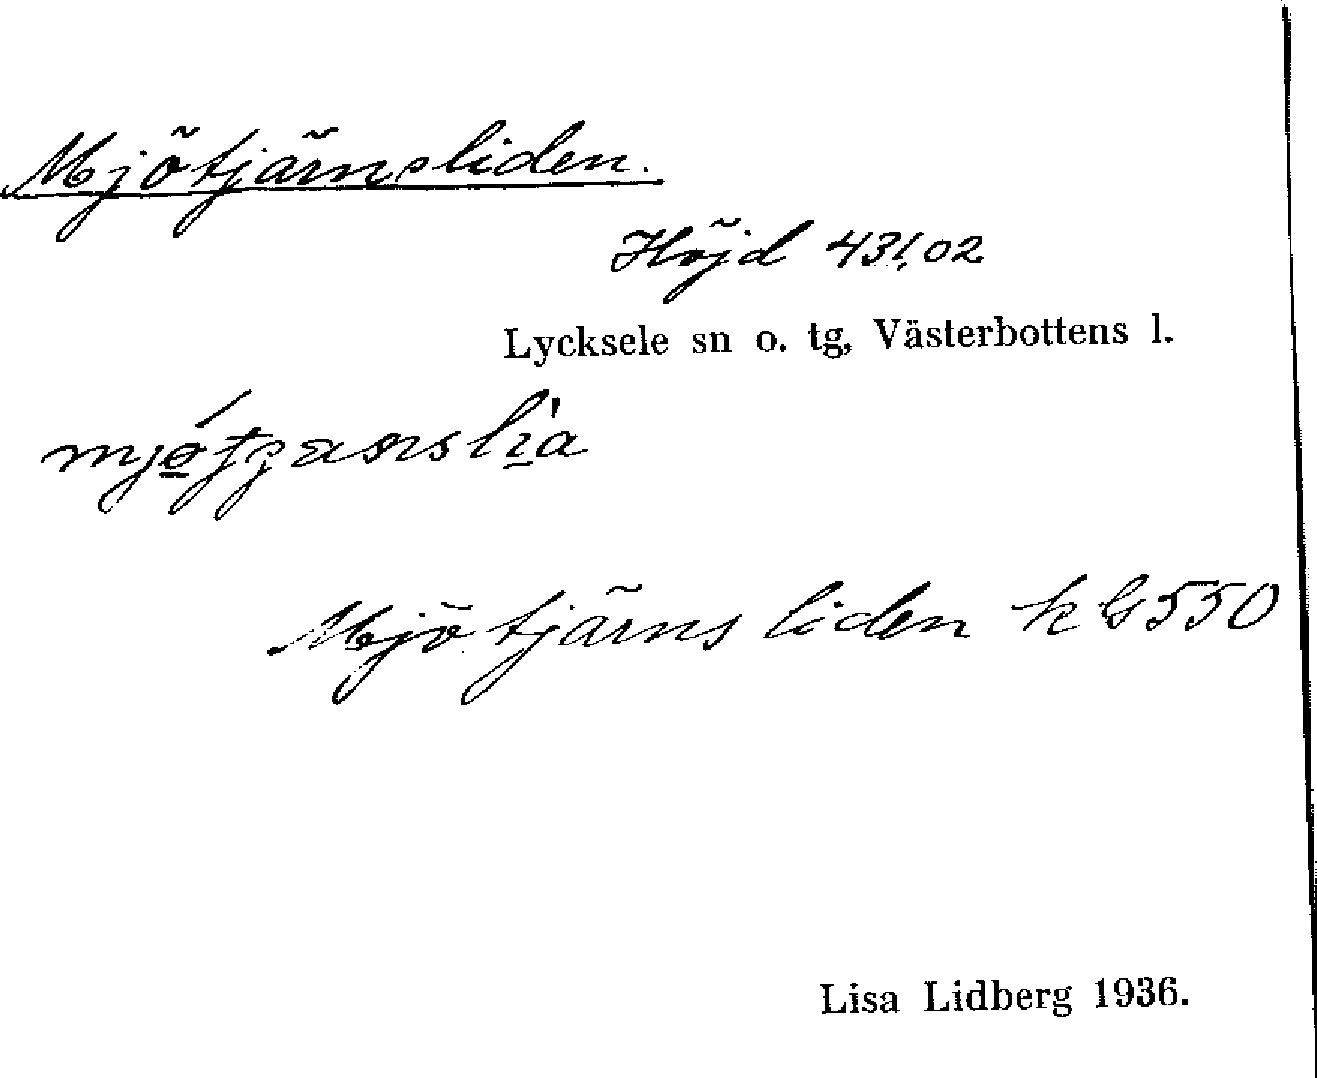 Mjötjärnsliden.
Höjd 431,02
Lycksele sn o. tg, Västerbottens l.
Mjötjärnsliden k G 550
Lisa Lidberg 1936.